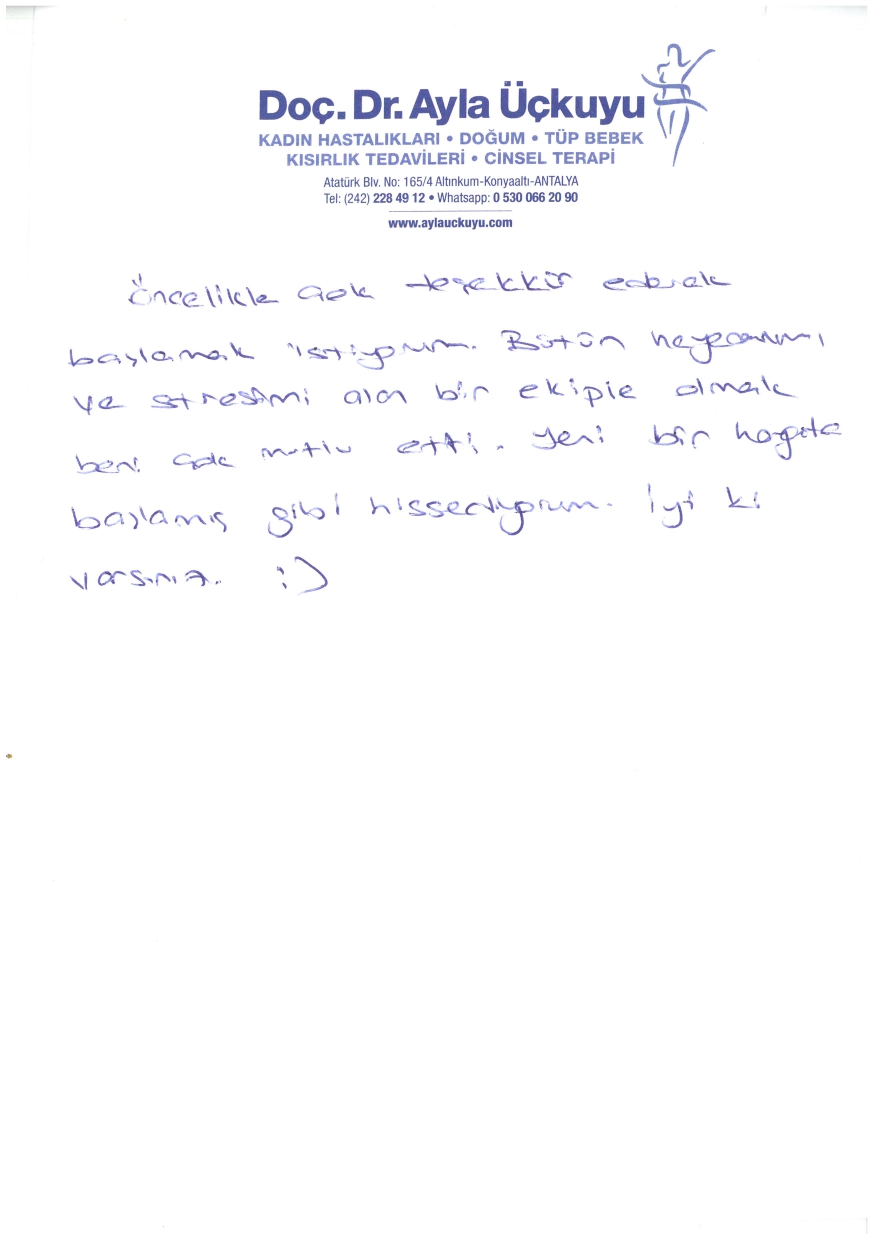 Doç. Dr. Ayla Üçkuyu
KADIN HASTALIKLARI • DOĞUM • TÜP BEBEK
KISIRLIK TEDAVİLERİ • CİNSEL TERAPİ
Atatürk Blv. No: 165/4 Altınkum-Konyaaltı-ANTALYA
Tel: (242) 228 49 12 • Whatsapp: 0 530 066 20 90
www.aylauckuyu.com
Öncelikle çok teşekkür ederek
başlamak istiyorum. Bütün heyecanımı
ve stresimi alan bir ekiple olmak
beni çok mutlu etti. Yeni bir hayata
başlamış gibi hissediyorum. İyi ki
varsınız. :)